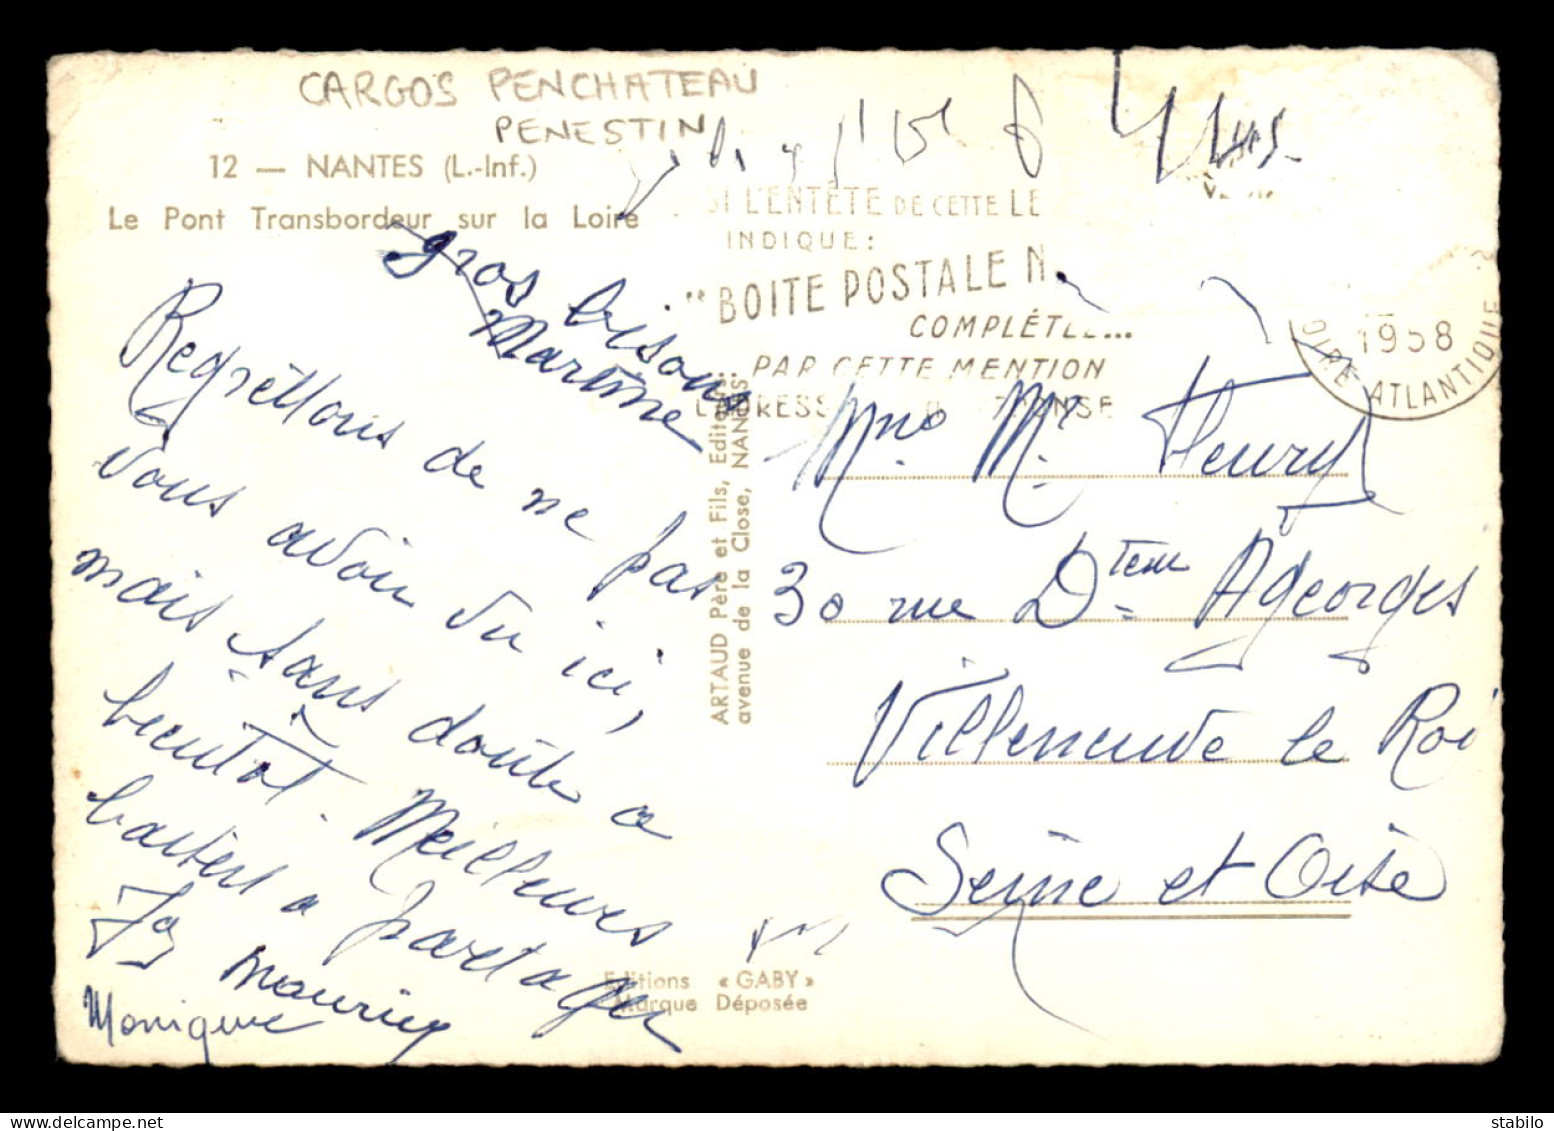 CARGOS PENCHATEAU
PENESTIN
12 — NANTES (L.-Inf.)
Le Pont Transbordeur sur la Loire
gros bisous
Martine
Regrettons de ne pas
vous avoir vu ici,
mais sans doute a
bientôt. Meilleures
a partager
Monique
ARTAUD Père et Fils, Editeurs
avenue de la Close, NANTES
Editions « GABY »
Marque Déposée
SI L'ENTÊTE DE CETTE LE
INDIQUE :
"BOITE POSTALE N
COMPLÉTE...
PAR CETTE MENTION
1958
LOIRE ATLANTIQUE
Mme Mr Fleury
30 rue Dteur Ageorges
Villeneuve le Roi
Seine et Oise
stabilo